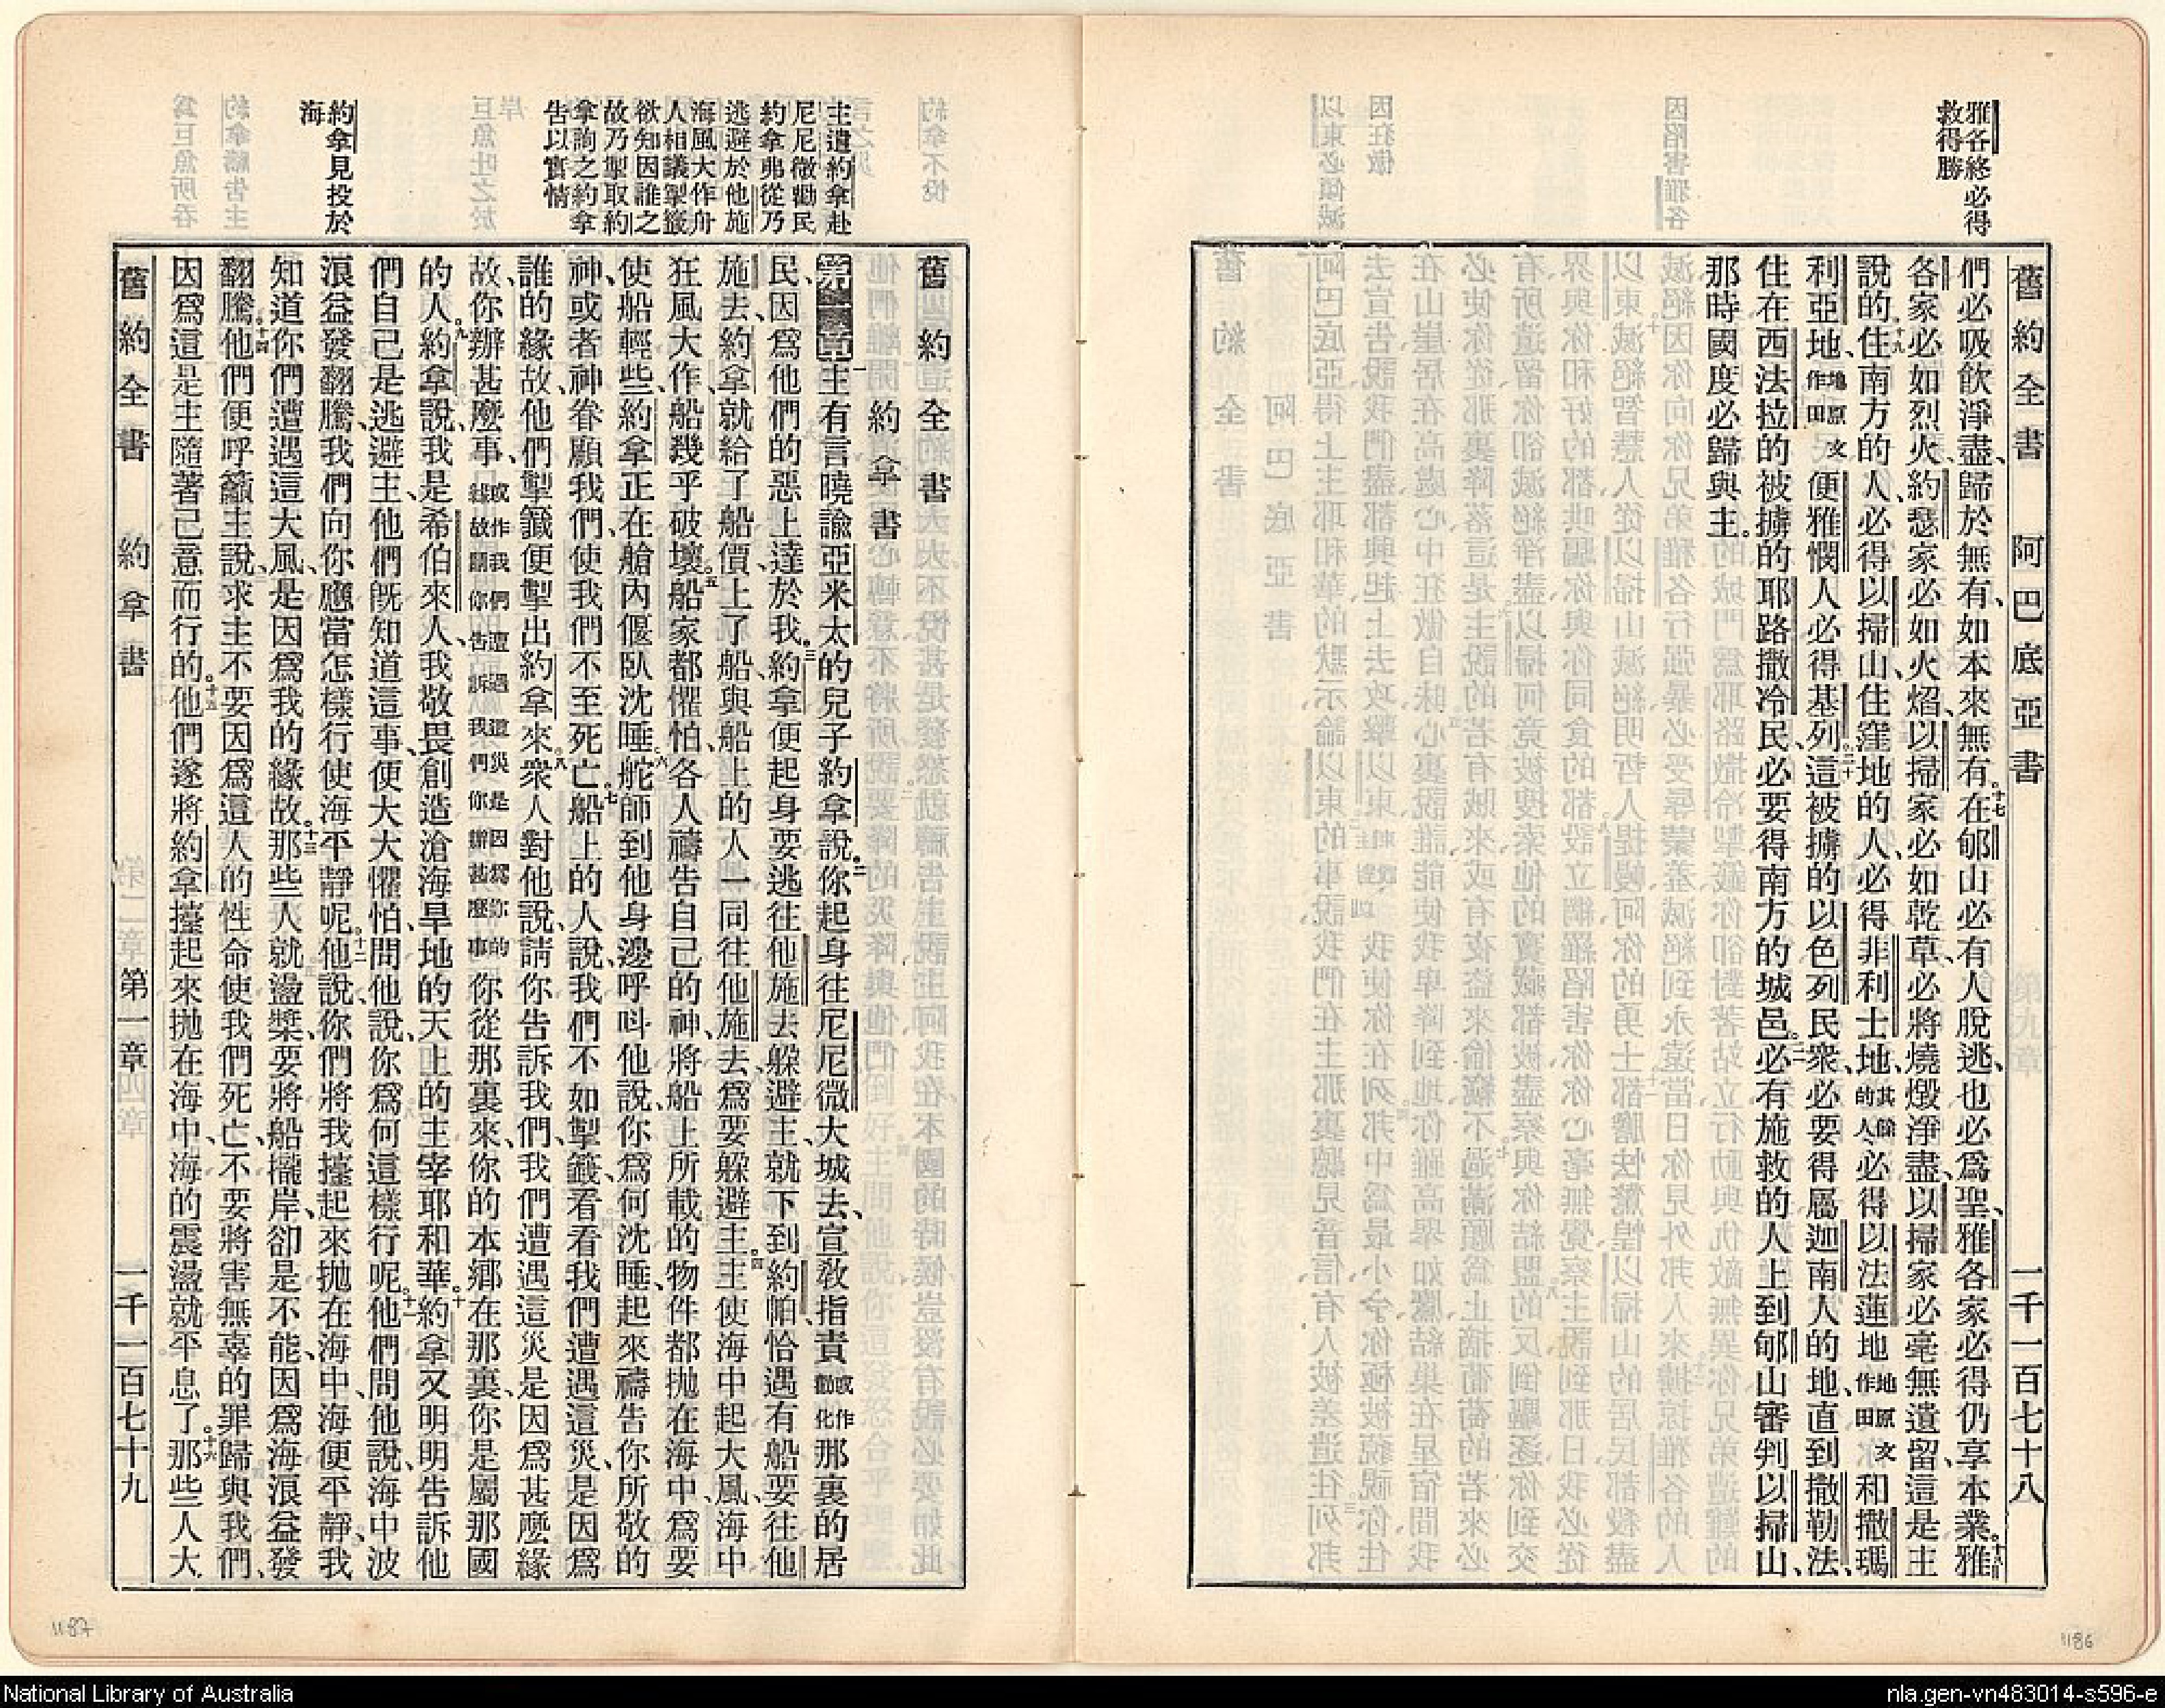 雅各終必得
救得勝
舊約全書 阿巴底亞書 一千一百七十八
們必吸飲淨盡、歸於無有、如本來無有。十七在郇山必有人脫逃、也必爲聖、雅各家必得仍享本業。十八雅
各家必如烈火、約瑟家必如火焰、以掃家必如乾草、必將燒燬淨盡、以掃家必毫無遺留、這是主
說的。十九住南方的人、必得以掃山、住窪地的人、必得非利士地、其餘的人、必得以法蓮地地原文作田和撒瑪
利亞地、地原文作田便雅憫人必得基列。二十這被擄的以色列民衆、必要得屬迦南人的地、直到撒勒法、
住在西法拉的被擄的耶路撒冷民、必要得南方的城邑。二一必有施救的人上到郇山、審判以掃山、
那時國度必歸與主。
主遣約拿赴
尼尼微勸民
約拿弗從乃
逃避於他施
海風大作舟
人相議掣籤
欲知因誰之
故乃掣取約
拿詢之約拿
告以實情
約拿見投於
海
舊約全書
約拿書
第一章 一主有言曉諭亞米太的兒子約拿說、二你起身往尼尼微大城去、宣教指責或作勸化那裏的居
民、因爲他們的惡上達於我。三約拿便起身要逃往他施去、躲避主、就下到約帕、恰遇有船要往他
施去、約拿就給了船價、上了船、與船上的人一同往他施去、爲要躲避主。四主使海中起大風、海中
狂風大作、船幾乎破壞。五船家都懼怕、各人禱告自己的神、將船上所載的物件都抛在海中、爲要
使船輕些、約拿正在艙內偃臥沈睡。六舵師到他身邊呼呌他說、你爲何沈睡、起來禱告你所敬的
神、或者神眷顧我們、使我們不至死亡。七船上的人說、我們不如掣籤、看看我們遭遇這災、是因爲
誰的緣故、他們掣籤便掣出約拿來。八衆人對他說、請你告訴我們、我們遭遇這災是因爲甚麽緣
故、你辦甚麽事、或作我們遭遇這災是因爲你的緣故請你告訴我們你辦甚麽事你從那裏來、你的本鄉在那裏、你是屬那國
的人。九約拿說、我是希伯來人、我敬畏創造滄海旱地的天上的主宰耶和華。十約拿又明明告訴他
們自己是逃避主、他們旣知道這事、便大大懼怕、問他說、你爲何這樣行呢。十一他們問他說、海中波
浪益發翻騰、我們向你應當怎樣行、使海平靜呢。十二他說、你們將我擡起來抛在海中、海便平靜、我
知道你們遭遇這大風、是因爲我的緣故。十三那些人就盪槳、要將船攏岸、卻是不能、因爲海浪益發
翻騰。十四他們便呼籲主說、求主不要因爲這人的性命使我們死亡、不要將害無辜的罪歸與我們、
因爲這是主隨著己意而行的。十五他們遂將約拿擡起來抛在海中、海的震盪就平息了。十六那些人大
舊約全書 約拿書 第一章 一千一百七十九
1187
1186
National Library of Australia
nla.gen-vn483014-s596-e